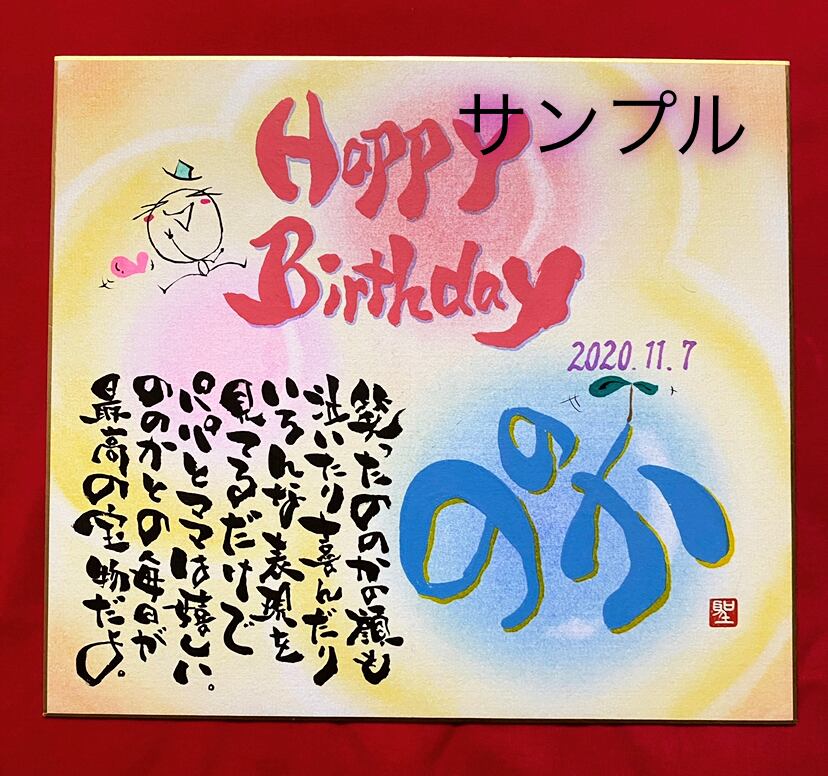 サンプル
Happy
Birthday
2020.11.7
ののか
笑ったののかの顔も
泣いたり喜んだり
いろんな表現を
見てるだけで
パパとママは嬉しい。
ののかとの毎日が
最高の宝物だよ。
聖